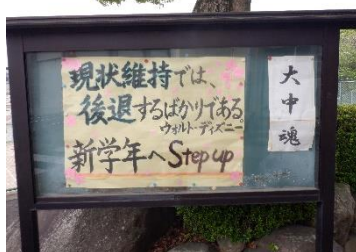 現状維持では、
後退するばかりである。
ウォルト・ディズニー
新学年へ Step up
大中魂